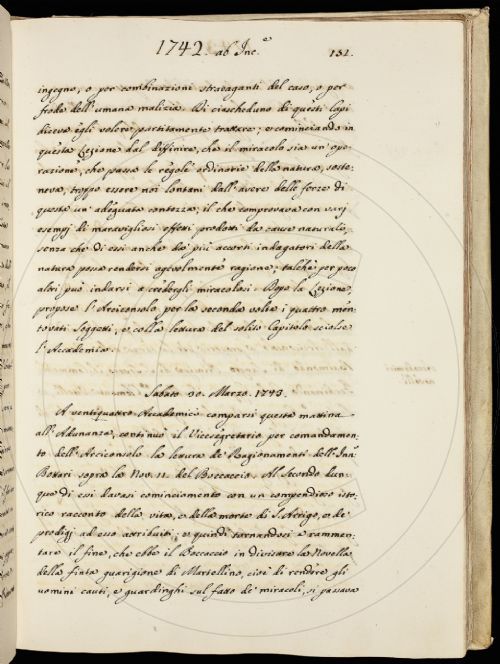 1742. ab Inc.e 131.
ingegno, o per combinazioni stravaganti del caso, o per
frode dell'umana malizia. Di ciascheduno di questi Capi
diceva egli volere partitamente trattare; e cominciando in
questa Lezione dal diffinire, che il miracolo sia un'ope-
razione, che passa le regole ordinarie della natura, soste-
neva, troppo essere noi lontani dall'avere delle forze di
questa un'adequata contezza; il che comprovava con varj
esempj di maravigliosi effetti prodotti da cause naturali,
senza che di essi anche da' più accorti indagatori della
natura possa rendersi agevolmente ragione; talchè per poco
altri può indursi a credergli miracolosi. Dopo la Lezione,
propose l'Arciconsolo per la seconda volta i quattro men-
tovati Soggetti, e colla lettura del solito Capitolo sciolse
l'Accademia.
Sabato 30. Marzo. 1743.
A ventiquattro Accademici comparsi questa mattina
all'Adunanza, continuò il Vicesegretario per comandamen-
to dell'Arciconsolo la lettura de' Ragionamenti dell'Inn.
Bottari sopra la Nov. 11. del Boccaccio. Al Secondo dun-
que di essi davasi cominciamento con un compendioso isto-
rico racconto della vita, e della morte di S. Arrigo, e de'
prodigj ad esso attribuiti; e quindi tornandosi a rammen-
tare il fine, che ebbe il Boccaccio in divisare la Novella
della finta guarigione di Martellino, cioè di rendere gli
uomini cauti, e guardinghi sul fatto de' miracoli, si passava